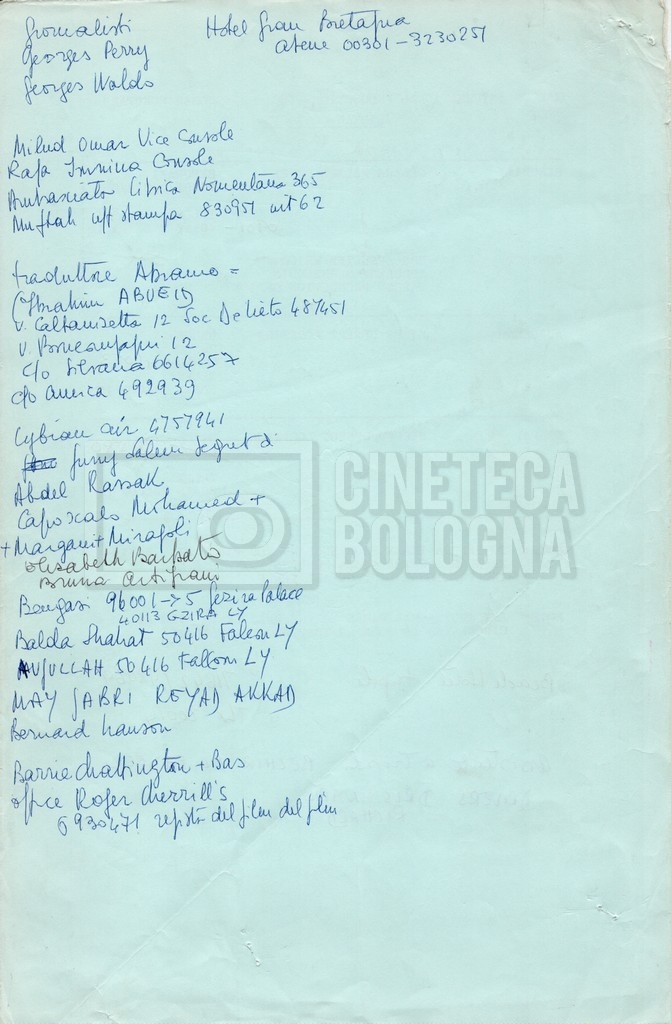 Giornalisti
Hotel Gran Bretagna
Atene 00301-3230251
Georges Perry
Georges Waldo
Milud Omar Vice Console
Rafa Console
Nomentana 365
Muftah uff stampa 830951 int 62
traduttore Abramo =
(Ibrahim ABUEID
v. Caltanisetta 12 Soc De lieto 487451
v. Boncompagni 12
c/o Silvana 6614257
c/o America 492939
Lybian air 4757941
Salem Segret di
Abdel Rassak
Caposcalo Mohamed +
+ Margaret Mirapoli
Elisabeth Barbato
Bruna Artigiani
Bengasi 96001->5 Gezira Palace
40113 GZIRA LY
Balda Shahat 50416 Falcon LY
AUJULLAH 50416 Falcon LY
MAY SABRI REYAD AKKAD
Bernard Hanson
Barrie Chattington + Bas
office Roger Cherrill's
6930471 regista del film del film
CINETECA
BOLOGNA